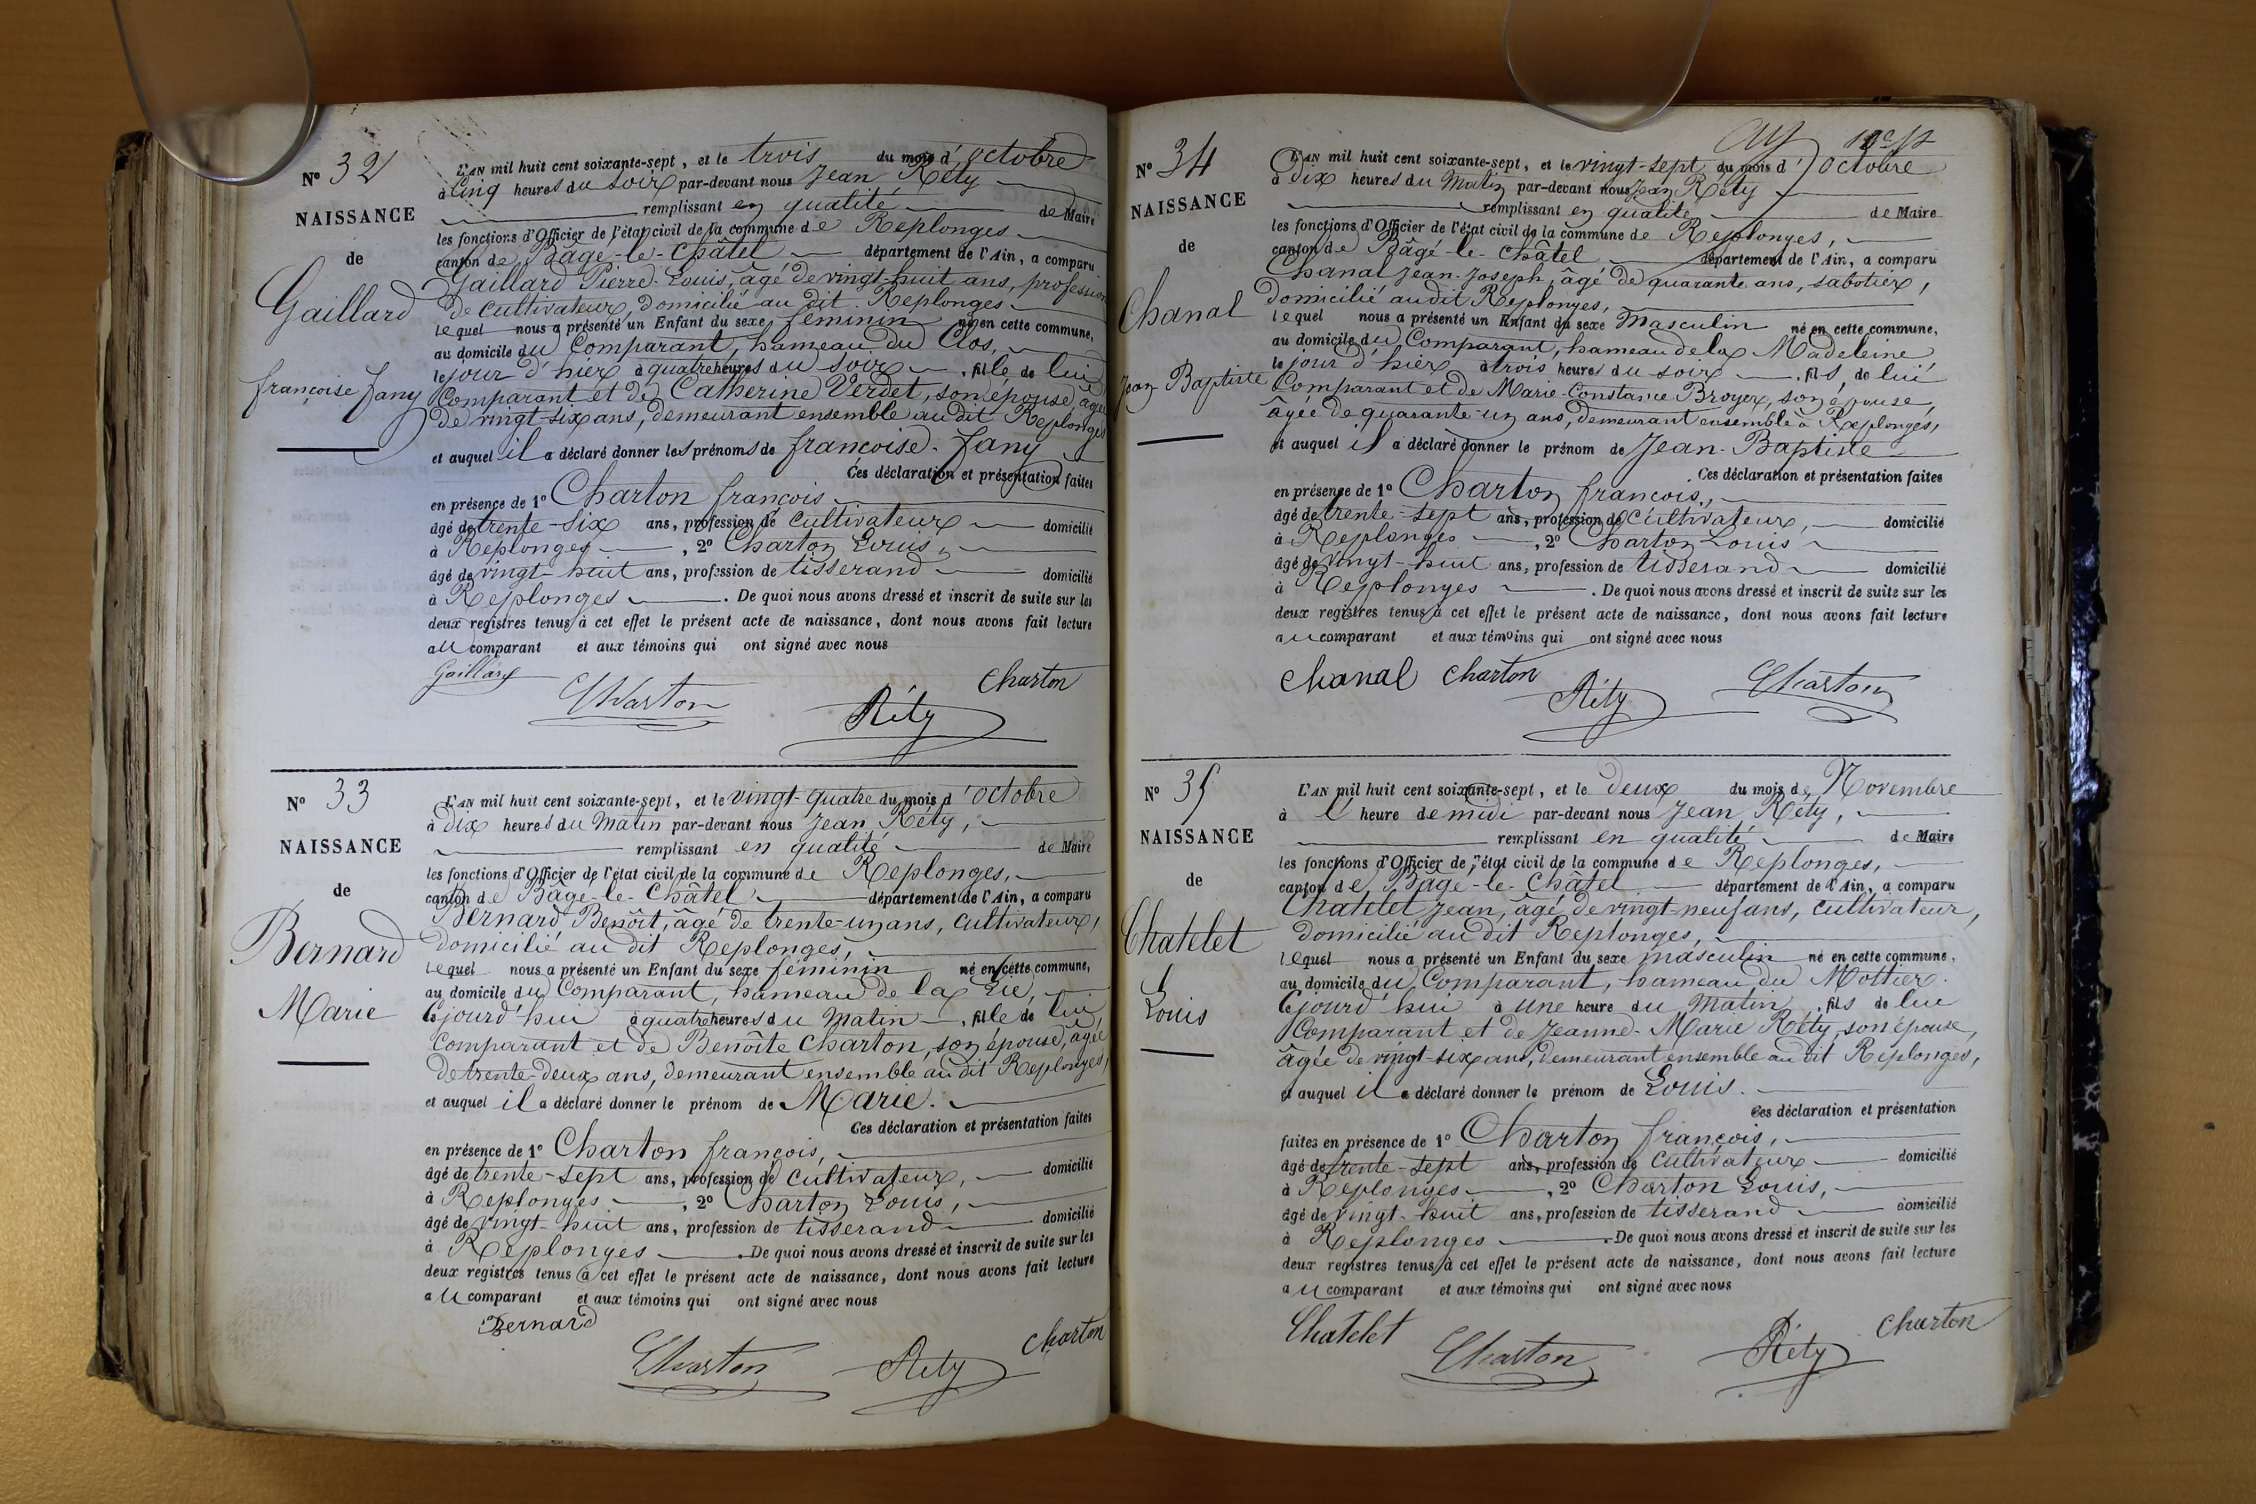 N° 32
NAISSANCE
de
Gaillard
françoise fany
L'AN mil huit cent soixante-sept, et le trois du mois d'octobre
à Cinq heures du soir par-devant nous Jean Réty
remplissant en qualité de Maire
les fonctions d'Officier de l'état civil de la commune de Replonges
canton de Bâgé-le-Châtel département de l'Ain, a comparu
Gaillard Pierre-Louis, âgé de vingt-huit ans, profession
de cultivateur, domicilié au dit Replonges
lequel nous a présenté un Enfant du sexe féminin né en cette commune,
au domicile du Comparant, hameau du Clos,
le jour d'hier à quatre heures du soir, fille de lui
Comparant et de Catherine Verdet, son épouse, âgée
de vingt-six ans, demeurant ensemble au dit Replonges
et auquel il a déclaré donner les prénoms de françoise-fany
Ces déclaration et présentation faites
en présence de 1° Charton françois
âgé de trente-six ans, profession de cultivateur domicilié
à Replonges, 2° Charton Louis,
âgé de vingt-huit ans, profession de tisserand domicilié
à Replonges. De quoi nous avons dressé et inscrit de suite sur les
deux registres tenus à cet effet le présent acte de naissance, dont nous avons fait lecture
au comparant et aux témoins qui ont signé avec nous
Gaillard Charton Réty Charton
N° 33
NAISSANCE
de
Bernard
Marie
L'AN mil huit cent soixante-sept, et le vingt-quatre du mois d'octobre
à dix heures du Matin par-devant nous Jean Réty,
remplissant en qualité de Maire
les fonctions d'Officier de l'état civil de la commune de Replonges,
canton de Bâgé-le-Châtel département de l'Ain, a comparu
Bernard Benoît, âgé de trente-un ans, cultivateur,
domicilié au dit Replonges,
lequel nous a présenté un Enfant du sexe féminin né en cette commune,
au domicile du Comparant, hameau de la
Cejourd'hui à quatre heures du Matin, fille de lui
Comparant et de Benoîte Charton, son épouse, âgée
de trente-deux ans, demeurant ensemble au dit Replonges,
et auquel il a déclaré donner le prénom de Marie.
Ces déclaration et présentation faites
en présence de 1° Charton françois,
âgé de trente-sept ans, profession de cultivateur, domicilié
à Replonges, 2° Charton Louis,
âgé de vingt-huit ans, profession de tisserand domicilié
à Replonges. De quoi nous avons dressé et inscrit de suite sur les
deux registres tenus à cet effet le présent acte de naissance, dont nous avons fait lecture
au comparant et aux témoins qui ont signé avec nous
Bernard Charton Réty Charton
N° 34
NAISSANCE
de
Chanal
Jean Baptiste
L'AN mil huit cent soixante-sept, et le vingt-sept du mois d'octobre
à dix heures du Matin par-devant nous Jean Réty
remplissant en qualité de Maire
les fonctions d'Officier de l'état civil de la commune de Replonges,
canton de Bâgé-le-Châtel département de l'Ain, a comparu
Chanal Jean-Joseph, âgé de quarante ans, sabotier,
domicilié audit Replonges,
lequel nous a présenté un Enfant du sexe Masculin né en cette commune,
au domicile du Comparant, hameau de la Madeleine
le jour d'hier à trois heures du soir, fils de lui
Comparant et de Marie-Constance Broyer, son épouse,
âgée de quarante-un ans, demeurant ensemble à Replonges,
et auquel il a déclaré donner le prénom de Jean-Baptiste
Ces déclaration et présentation faites
en présence de 1° Charton françois,
âgé de trente-sept ans, profession de cultivateur, domicilié
à Replonges, 2° Charton Louis
âgé de vingt-huit ans, profession de tisserand domicilié
à Replonges. De quoi nous avons dressé et inscrit de suite sur les
deux registres tenus à cet effet le présent acte de naissance, dont nous avons fait lecture
au comparant et aux témoins qui ont signé avec nous
Chanal Charton Réty Charton
N° 35
NAISSANCE
de
Chatelet
Louis
L'AN mil huit cent soixante-sept, et le deux du mois de Novembre
à l'heure de midi par-devant nous Jean Réty,
remplissant en qualité de Maire
les fonctions d'Officier de l'état civil de la commune de Replonges,
canton de Bâgé-le-Châtel département de l'Ain, a comparu
Chatelet Jean, âgé de vingt-neuf ans, cultivateur,
domicilié au dit Replonges,
lequel nous a présenté un Enfant du sexe masculin né en cette commune,
au domicile du Comparant, hameau du Mottier.
Cejourd'hui à une heure du Matin, fils de lui
Comparant et de Jeanne-Marie Réty, son épouse,
âgée de vingt-six ans, demeurant ensemble au dit Replonges,
et auquel il a déclaré donner le prénom de Louis.
Ces déclaration et présentation
faites en présence de 1° Charton françois,
âgé de trente-sept ans, profession de cultivateur domicilié
à Replonges, 2° Charton Louis,
âgé de vingt-huit ans, profession de tisserand domicilié
à Replonges. De quoi nous avons dressé et inscrit de suite sur les
deux registres tenus à cet effet le présent acte de naissance, dont nous avons fait lecture
au comparant et aux témoins qui ont signé avec nous
Chatelet Charton Réty Charton